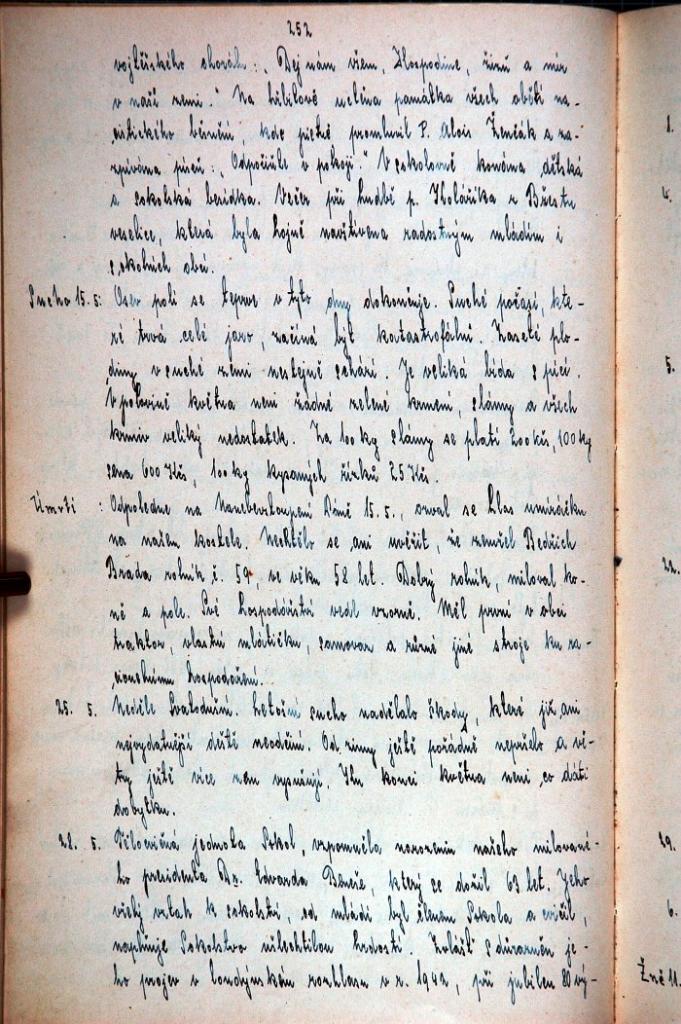 252
vojtěšského chorálu: „Dej nám všem, Hospodine, žizň a mír
v naší zemi." Na hřbitově uctěna památka všech obětí na-
citického běsnění, kde pietně promluvil P. Alois Ženčák a za-
zpívána píseň: „Odpočiňte v pokoji." V sokolovně konána dětská
a sokolská besídka. Večer při hudbě p. Kolaříka z Břestu
veselice, která byla hojně navštívena radostným mládím i
z okolních obcí.
Sucho 15. 5.: Osev polí se teprve v tyto dny dokončuje. Suché počasí, kte-
ré trvá celé jaro, začíná být katastrofální. Zaseté plo-
diny v suché zemi nestejně schází. Je veliká bída s pící.
V polovině května není žádné zelené krmení, slámy a všech
krmiv veliký nedostatek. Za 100 kg slámy se platí 200 Kčs, 100 kg
sena 600 Kčs, 100 kg kysaných řízků 25 Kčs.
Úmrtí : Odpoledne na Nanebevstoupení Páně 15. 5., ozval se hlas umíráčku
na našem kostele. Nechtělo se ani uvěřit, že zemřel Bedřich
Brada rolník č. 59, ve věku 58 let. Dobrý rolník, miloval ko-
ně a pole. Své hospodářství vedl vzorně. Měl první v obci
traktor, vlastní mlátičku, samovaz a různé jiné stroje ku ra-
cionelnímu hospodaření.
25. 5. Neděle Svatodušní. Letošní sucho nadělalo škody, které již ani
nejvydatnější déště neodčiní. Od zimy ještě pořádně nepršelo a vě-
try ještě více zem vysušují. Ku konci května není co dáti
dobytku.
28. 5. Tělocvičná jednota Sokol, vzpomněla narozenin našeho milované-
ho presidenta Dr. Edvarda Beneše, který se dožil 63 let. Jeho
vřelý vztah k sokolství, od mládí byl členem Sokola a cvičil,
naplňuje Sokolstvo ušlechtilou hrdostí. Zvlášť zdůrazněn je-
ho projev v londýnském rozhlasu v r. 1942, při jubileu 80 vý-
1.
4.
5.
22.
29.
6.
Žně 11.